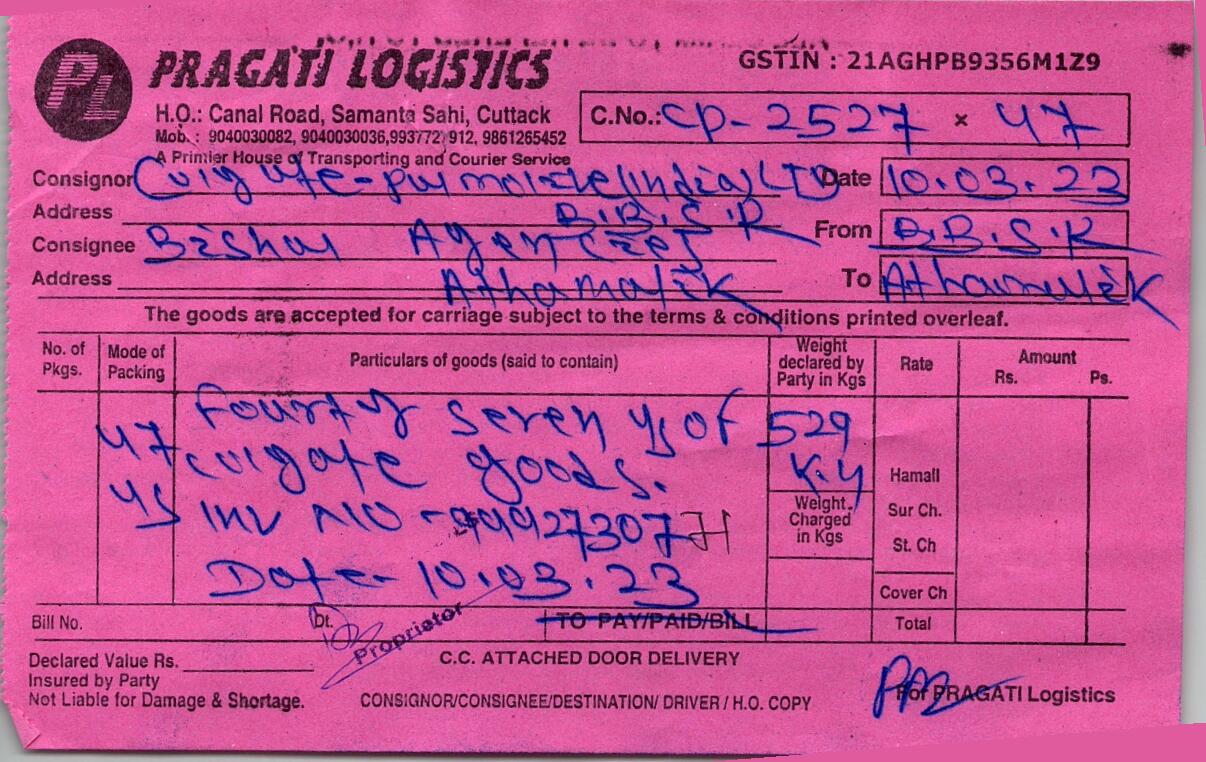 PL PRAGATI LOGISTICS
GSTIN : 21AGHPB9356M1Z9
H.O.: Canal Road, Samanta Sahi, Cuttack
Mob.: 9040030082, 9040030036,993772 912, 9861265452
C.No.: CP-2527 × 47
A Primier House of Transporting and Courier Service
Consignor Colgate-palmolive(India)LTD Date 10.03.23
Address B.B.S.R
From B.B.S.R
Consignee Bishal Agencies
Address Athamalik To Athamalik
The goods are accepted for carriage subject to the terms & conditions printed overleaf.
No. of Pkgs. Mode of Packing Particulars of goods (said to contain) Weight declared by Party in Kgs Rate Amount Rs. Ps.
Fourty seven of 529
47 colgate goods. K.g
Hamall
INV NO - 99927307H
Weight Charged in Kgs
Sur Ch.
St. Ch
Date- 10.03.23
Cover Ch
Bill No. Dt. Proprietor TO PAY/PAID/BILL Total
Declared Value Rs. C.C. ATTACHED DOOR DELIVERY
Insured by Party
Not Liable for Damage & Shortage. CONSIGNOR/CONSIGNEE/DESTINATION/ DRIVER / H.O. COPY For PRAGATI Logistics